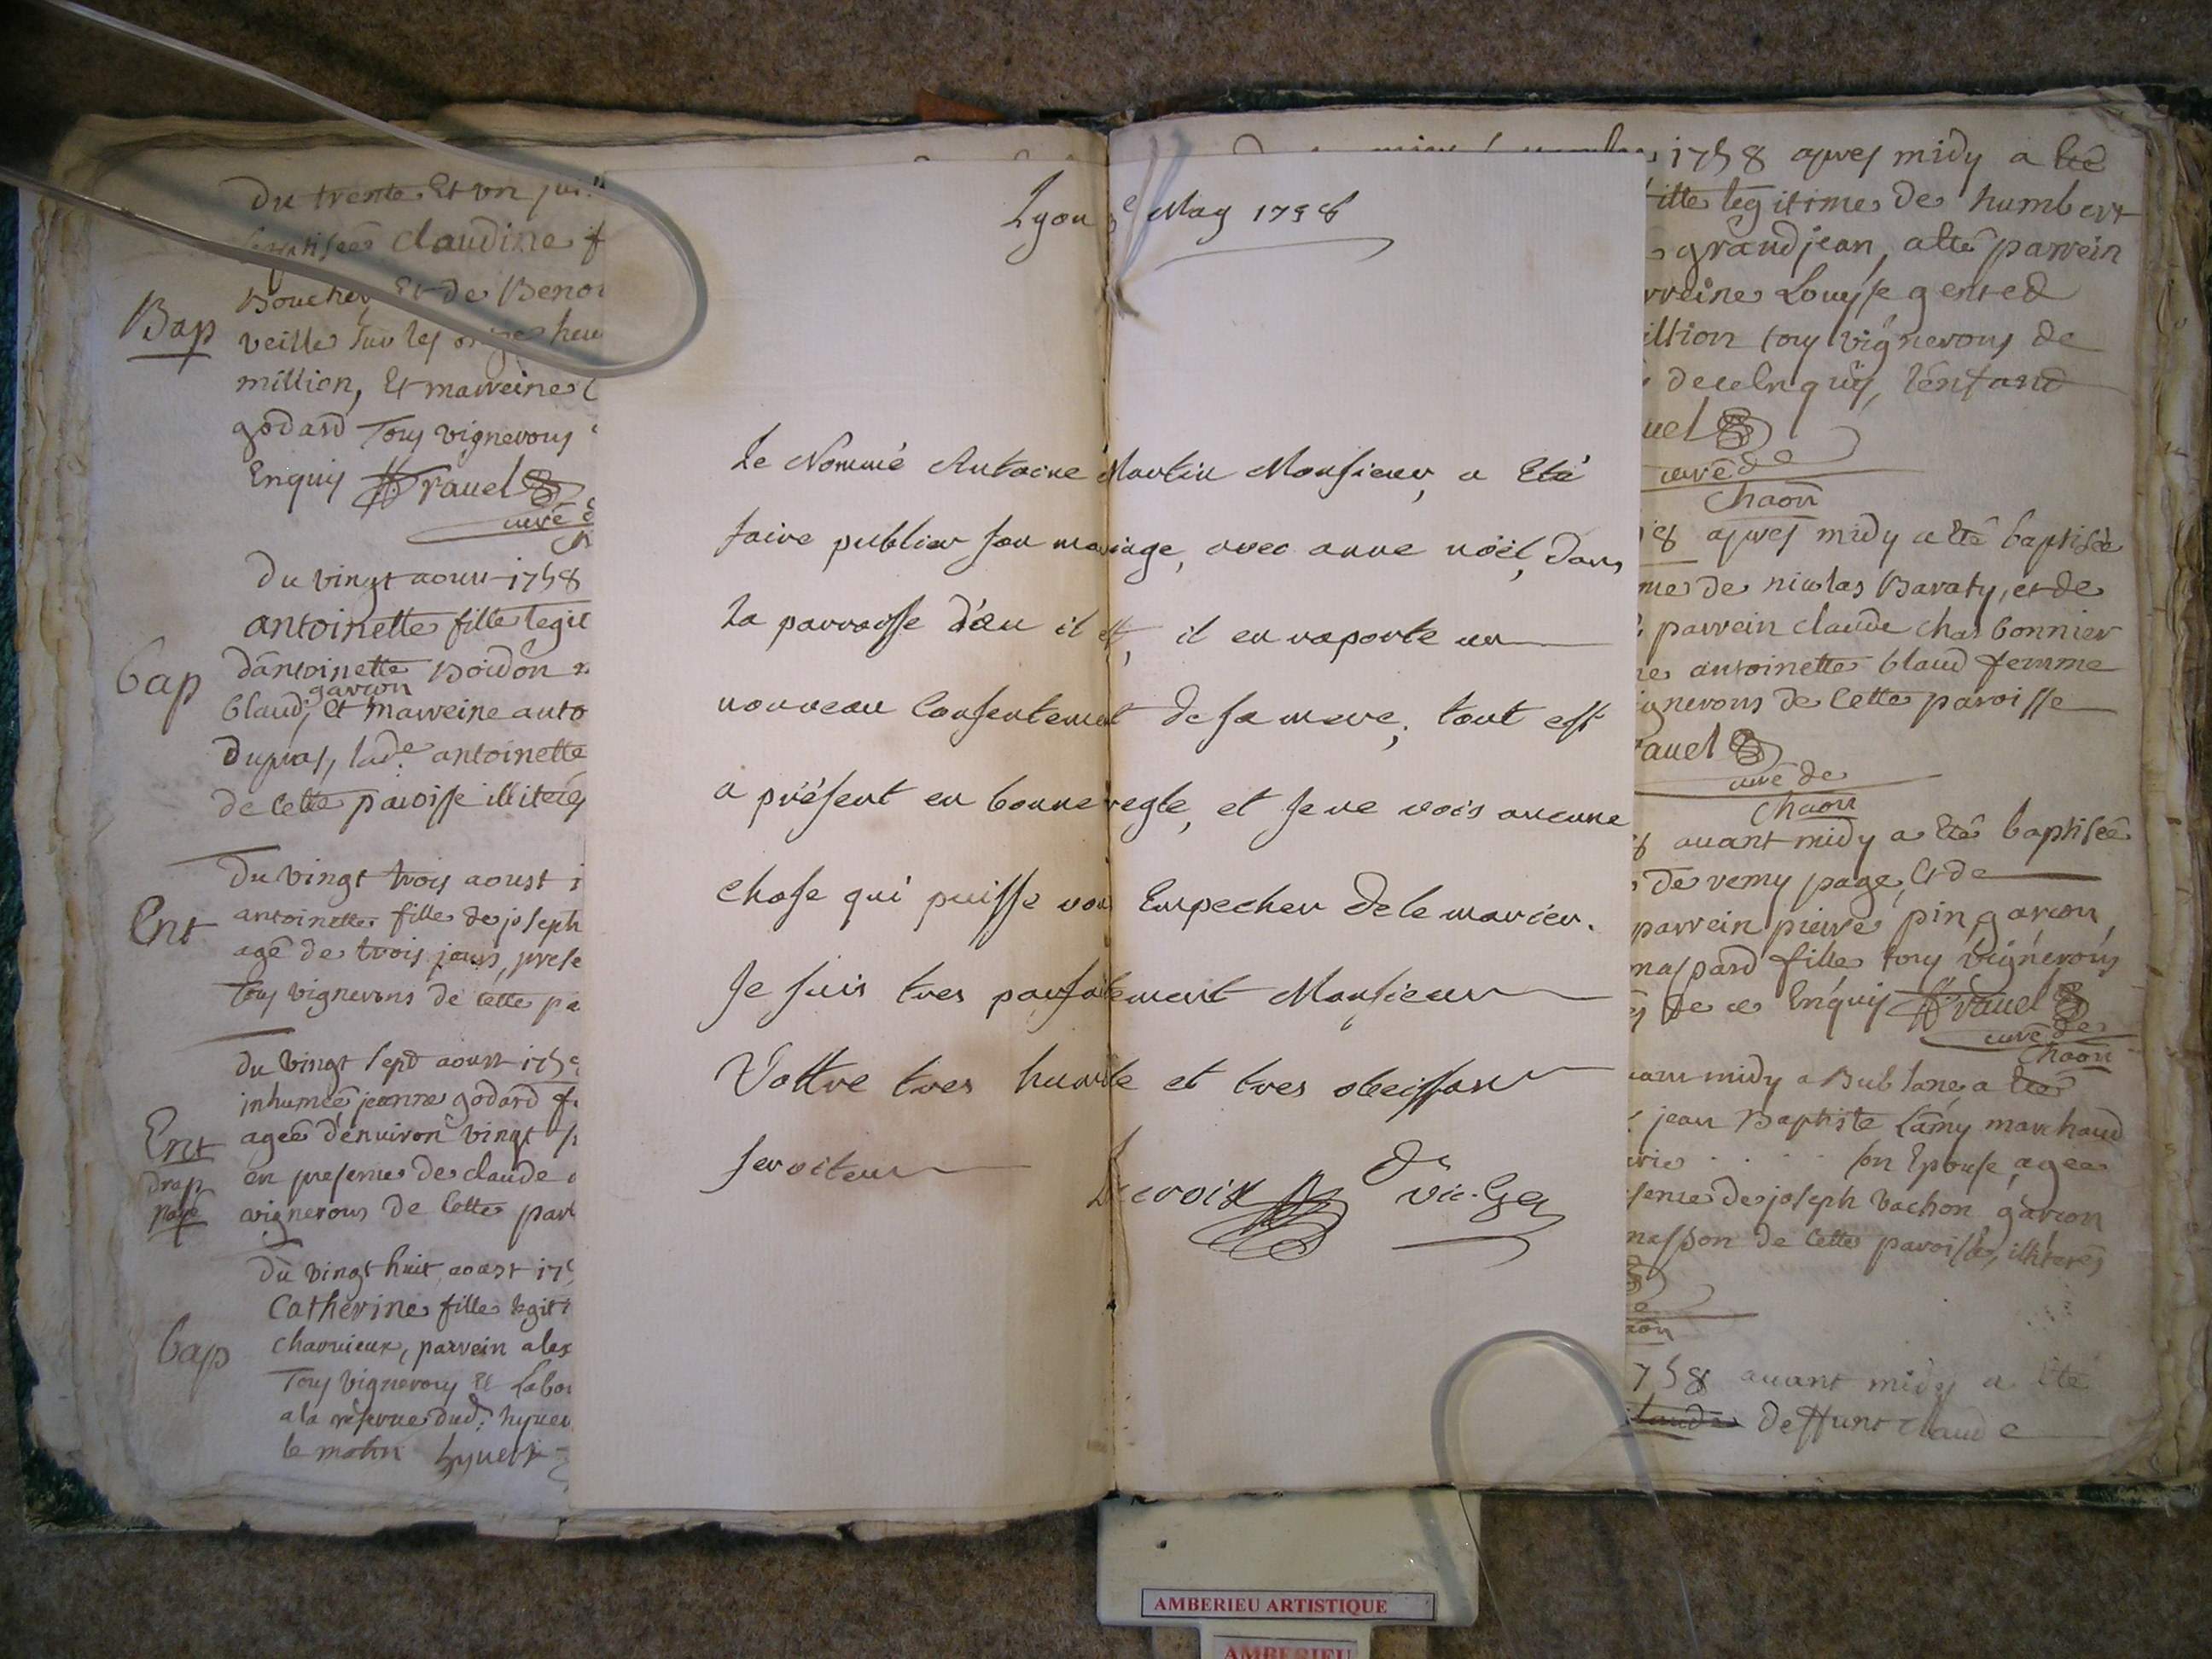 du trente et un
baptisée claudine
Bap
Boucher, et de Benoi
veille sur les onze heu
million, Et marreine
godard Tous vignerons
Enquis ravel
curé
du vingt aoust 1758
antoinette fille legit
bap
d'antoinette Boidon
garcon
blaud, et marreine anto
dupras, lad.e antoinette
de cette paroisse illiterés
du vingt trois aoust
Ent
antoinette fille de joseph
agé de trois jours, prese
tous vignerons de cette pa
du vingt sept aoust 175
inhumée jeanne godard
Ent
agée d'enuiron vingt
drap
en presence de claude
payé
vignerons de cette par
du vingt huit aoust 17
Catherine fille legit
bap
charuieux, parrein alex
Tous vignerons Et Labou
a la reserve dud.
le matin hyvert
Lyon e May 1758
Le Nommé Antoine Martin Monsieur, a Eté
faire publier son mariage, avec anne nöel, dans
La parroisse d'ou il est, il en raporte un
nouveau Consentement de sa mere, tout est
a présent en bonne regle, et Je ne vois aucune
chose qui puisse vous Empecher de le marier.
Je suis tres parfaitement Monsieur
Vottre tres humble et tres obeissant
serviteur
Decroix vic. Ge
1758 apres midy a eté
fille legitime de humbert
grandjean, a eté parrein
rreine Louyse gented
illion tous vignerons de
de ce Enquis, l'enfand
uel
curé de
Chaon
apres midy a eté baptisée
me de nicolas Baraty, et de
parrein claude charbonnier
antoinette blaud femme
ignerons de Cette paroisse
rauel
curé de
Chaon
auant midy a eté baptisée
de remy page, Et de
parrein pierre pin, garcon,
maspard fille tous vignerons
de ce Enquis rauel
curé de
Chaon
midy a Bublane a eté
jean Baptiste Lamy marchand
son Epouse, agée
sence de joseph vachon garcon
masson de Cette paroisse, illiterés
758 auant midy a Eté
claude deffunt claude
AMBERIEU ARTISTIQUE
AMBERIEU